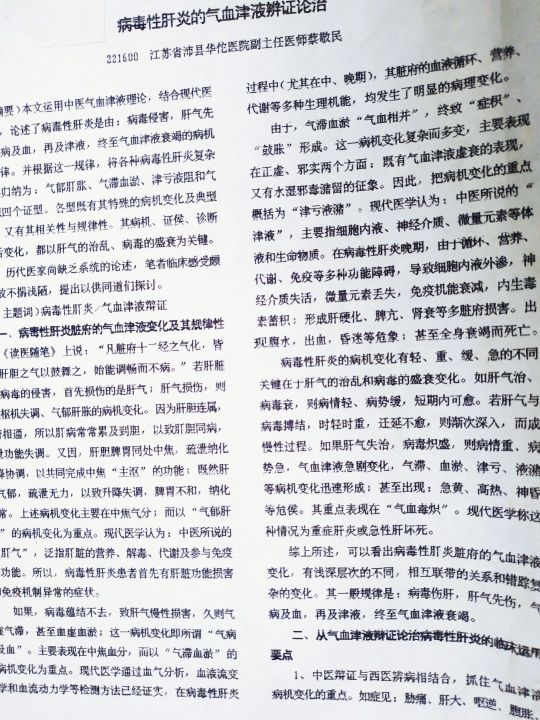 病毒性肝炎的气血津液辨证论治
221600 江苏省沛县华佗医院副主任医师蔡敬民
摘要）本文运用中医气血津液理论，结合现代医
，论述了病毒性肝炎是由：病毒侵害，肝气先
病及血，再及津液，终至气血津液衰竭的病机
律。并根据这一规律，将各种病毒性肝炎复杂
归纳为：气郁肝胀、气滞血淤、津亏液阻和气
四个证型。各型既有其特殊的病机变化及典型
又有其相关性与规律性。其病机、证侯、诊断
变化，都以肝气的治乱、病毒的盛衰为关键。
历代医家尚缺乏系统的论述，笔者临床感受颇
故不揣浅陋，提出以供同道们探讨。
主题词）病毒性肝炎／气血津液辩证
一、病毒性肝炎脏府的气血津液变化及其规律性
《读医随笔》上说：“凡脏府十二经之气化，皆
肝胆之气以鼓舞之，始能调畅而不病。”若肝脏
病毒的侵害，首先损伤的是肝气；肝气损伤，则
枢机失调、气郁肝胀的病机变化。因为肝胆连属，
相通，所以肝病常常累及到胆，以致肝胆同病，
功能失调。又因，肝胆脾胃同处中焦，疏泄纳化
协调，以共同完成中焦“主沤”的功能；既然肝
气郁，疏泄无力，以致升降失调，脾胃不和，纳化
常。上述病机变化主要在中焦气分；而以“气郁肝
”的病机变化为重点。现代医学认为：中医所说的
肝气”，泛指肝脏的营养、解毒、代谢及参与免疫
功能。所以，病毒性肝炎患者首先有肝脏功能损害
免疫机制异常的症状。
如果，病毒蕴结不去，致肝气慢性损害，久则气
气滞，甚至血虚血淤；这一病机变化即所谓“气病
及血”。主要表现在中焦血分，而以“气滞血淤”的
病机变化为重点。现代医学通过血气分析，血液流变
学和血流动力学等检测方法已经证实，在病毒性肝炎
过程中(尤其在中、晚期)，其脏府的血液循环、营养、
代谢等多种生理机能，均发生了明显的病理变化。
由于，气滞血淤“气血相并”，终致“症积”、
“鼓胀”形成。这一病机变化复杂而多变，主要表现
在正虚、邪实两个方面：既有气血津液虚衰的表现，
又有水湿邪毒潴留的征象。因此，把病机变化的重点
概括为“津亏液潴”。现代医学认为：中医所说的“
津液”，主要指细胞内液、神经介质、微量元素等体
液和生命物质。在病毒性肝炎晚期，由于循环、营养、
代谢、免疫等多种功能障碍，导致细胞内液外渗，神
经介质失活，微量元素丢失，免疫机能衰减，内生毒
素蓄积；形成肝硬化、脾亢、肾衰等多脏府损害。出
现腹水，出血，昏迷等危象；甚至全身衰竭而死亡。
病毒性肝炎的病机变化有轻、重、缓、急的不同
关键在于肝气的治乱和病毒的盛衰变化。如肝气治、
病毒衰，则病情轻、病势缓，短期内可愈。若肝气与
病毒搏结，时轻时重，迁延不愈，则渐次深入，而成
慢性过程。如果肝气失治，病毒炽盛，则病情重、病
势急，气血津液急剧变化，气滞、血淤、津亏、液潴
等病机变化迅速形成；甚至出现：急黄、高热、神昏
等危侯。其重点表现在“气血毒炽”。现代医学称这
种情况为重症肝炎或急性肝坏死。
综上所述，可以看出病毒性肝炎脏府的气血津液
变化，有浅深层次的不同，相互联带的关系和错综复
杂的变化。其一般规律是：病毒伤肝，肝气先伤，气
病及血，再及津液，终至气血津液衰竭。
二、从气血津液辩证论治病毒性肝炎的临床运用
要点
1、中医辩证与西医辨病相结合，抓住气血津液
病机变化的重点。如症见：胁痛、肝大、呕逆、腹胀、